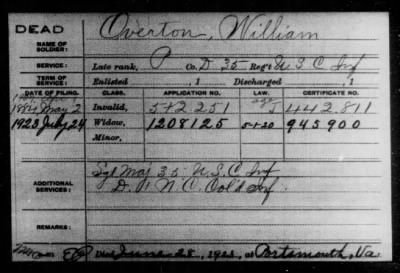 DEAD
Overton, William
NAME OF SOLDIER:
SERVICE:
Late rank, P Co. D, 35 Reg't U S C Inf
TERM OF SERVICE:
Enlisted , 1 Discharged , 1
DATE OF FILING. CLASS. APPLICATION NO. LAW. CERTIFICATE NO.
1885 May 2 Invalid, 542251 442.811
1923 July 24 Widow, 1208125 5-1-20 945900
Minor,
ADDITIONAL SERVICES:
Sgt Maj 35 U.S.C. Inf
D. 1 N.C. Col'd Inf.
REMARKS:
Died June 28, 1923, at Portsmouth, Va.